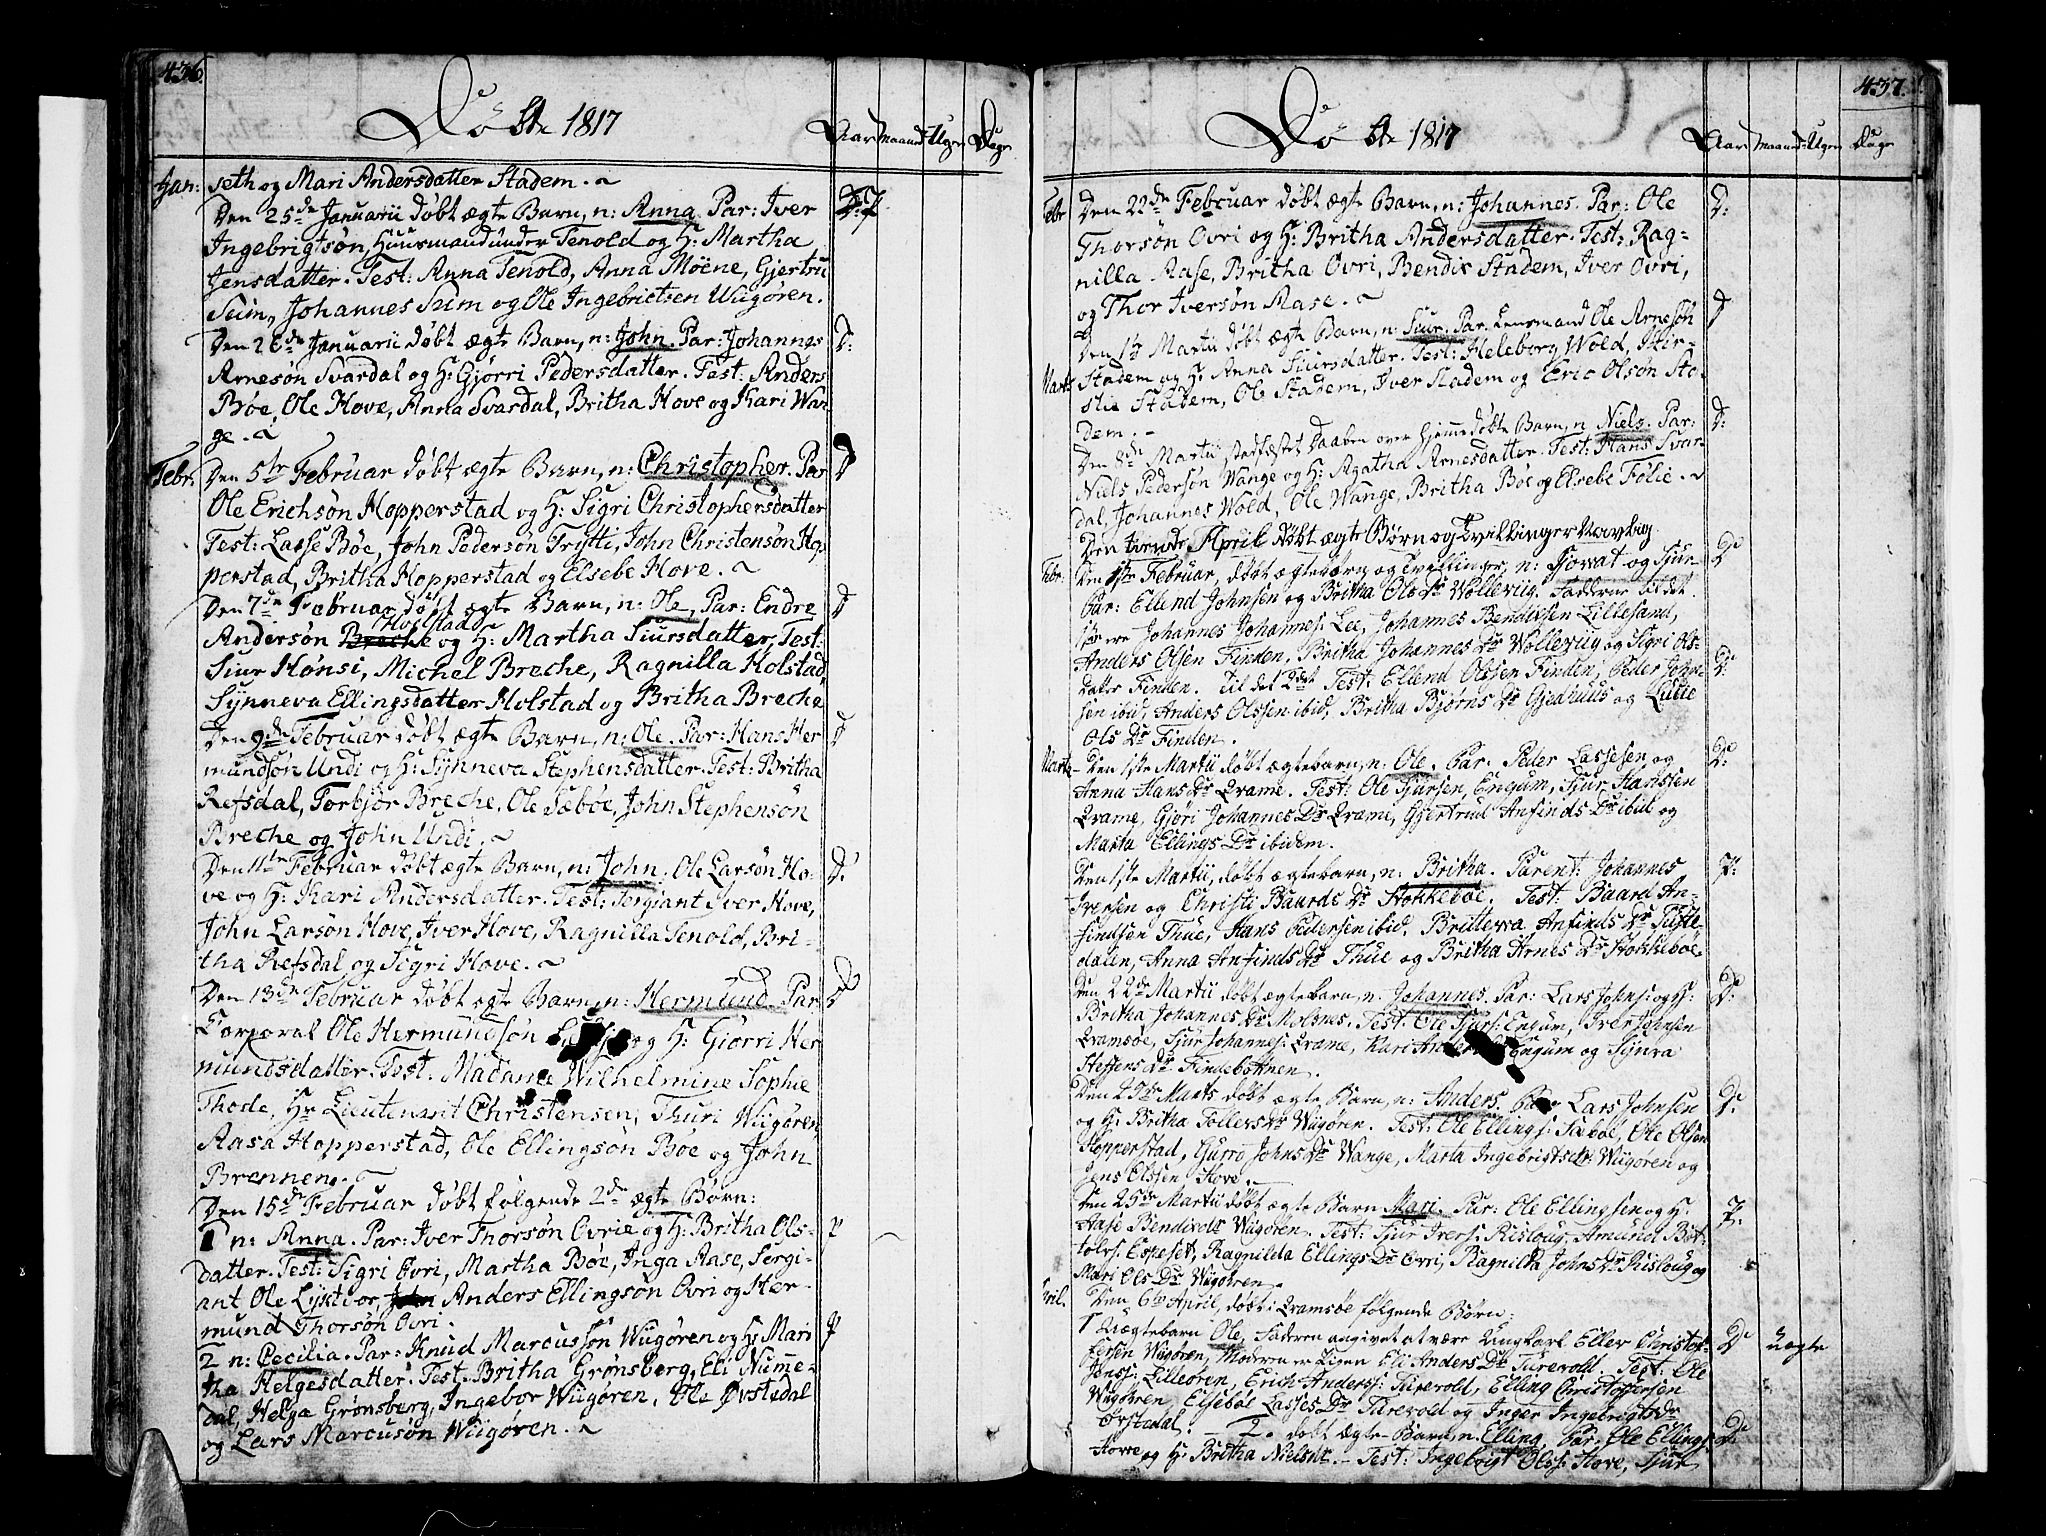 436.
Døbte 1817
Aar Maaned Uger Dage
Jan: seth og Mari Andersdatter Stadem. ~
Den 25de Januarii døbt ægte Barn, n: Anna. Par: Iver
Ingebrigtsøn, Huusmand under Tenold og H: Martha
Jensdatter. Test: Anna Tenold, Anna Möene, Gjertru
Seim, Johannes Seim og Ole Ingebrietsen Wiigøren.
Den 26de Januarii døbt ægte Barn, n: John. Par: Johannes D:
Arnesøn Svardal og H: Gjørri Pedersdatter. Test: Anders
Bøe, Ole Hove, Anna Svardal, Britha Hove og Kari Wan
ge. ~
Febr. Den 5te Februar døbt ægte Barn, n: Christopher. Par D
Ole Erichsøn Hopperstad og H: Sigri Christophersdatter
Test: Lasse Bøe, John Pedersøn Trytti, John Christensøn Hop
perstad, Britha Hopperstad og Elsebe Hove. ~
Den 7de Februar døbt ægte Barn, n: Ole, Par: Endre D
Hoelstad
Andersøn Breche og H: Martha Siursdatter, Test:
Siur Hønsi, Michel Breche, Ragnilla Holstad,
Synneva Ellingsdatter Holstad og Britha Breche
Den 9de Februar døbt ægte Barn, n: Ole. Par: Hans Her D
mundsøn Undi og H: Synneva Stephensdatter. Test: Britha
Refsdal, Torbjør Breche, Ole Sæbøe, John Stephensøn
Breche og John Undi. ~
Den 11te Februar døbt ægte Barn, n: John. Ole Larsøn Ho- D:
ve og H: Kari Andersdatter. Test: Sergiant Iver Hove,
John Larsøn Hove, Iver Hove, Ragnilla Tenold, Bri-
tha Refsdal og Sigri Hove. ~
Den 13de Februar døbt ægte Barn, n: Hermund. Par D
Corporal Ole Hermundsøn og H: Giørri Her
mundsdatter. Test: Madame Wilhelmine Sophie
Thode, Hr Lieutenant Christensen, Thuri Wiigøren,
Aasa Hopperstad, Ole Ellingsøn Bøe og John
Brennen. ~
Den 15de Februar døbt følgende 2de ægte Børn:
1 n: Anna. Par: Iver Thorsøn Ovrie og H: Britha Ols- P
datter. Test: Sigri Ovri, Martha Bøe, Inga Aase, Sergi-
ant Ole Lyktvor, Anders Ellingsøn Ovri og Her-
mund Thorsøn Ovri.
2 n: Cecilia. Par: Knud Marcussøn Wiigøren og H: Mari P
tha Helgesdatter. Test: Britha Grønsberg, Eli Numme-
dal, Helga Grønsberg, Ingebor Wiigøren, Ole Øvstedal
og Lars Marcusøn Wiigøren. ~
437.
Døbte 1817
Aar Maaned Uger Dage
Febr Den 22de Februar døbt ægte Barn, n: Johannes. Par: Ole D:
Thorsøn Ovri og H: Britha Andersdatter. Test: Rag-
nilla Aase, Britha Ovri, Bendix Stadem, Iver Ovri,
og Thor Iversøn Aase. ~
Den 1te Martii døbt ægte Barn, n: Siur. Par. Lensmand Ole Arnesøn D
Marts Stadem og H: Anna Siursdatter. Test: Heleborg Wold, Kir-
stie Stadem, Ole Stadem, Iver Stadem og Eric Olsøn Sta-
dem. -
Den 8de Martii stadfæstet Daaben over hjemmedøbte Barn, n Niels. Par: D:
Niels Pedersøn Wange og H: Agatha Arnesdatter. Test: Hans Svar-
dal, Johannes Wold, Ole Wange, Britha Bøe og Elsebe Følie. ~
Den April døbt ægte Børn og Tvillinger Navnlig
Febr: Den 1ste Februar, døbt ægtebørn og Tvillinger, n: Siovat og Sjur- D
Par: Ellend Johnsen og Britha Ols Dr Wolleviig. Fadderne til det
1ste ere Johannes Johannes: Lee, Johannes Bendixsen Lillesand,
Anders Olsen Finden, Britha Johannes Dr Wolleviig og Sigri Ols-
datter Finden. Til det 2det Test: Ellend Olssen Finden, Peder John- D:
sen ibid, Anders Olssen ibid, Britha Bjørns Dr Gjeduus og Lucie
Ols Dr Finden.
Marts - Den 1ste Martii døbt ægtebarn, n: Ole. Par. Peder Lassesen og D:
Anna Hans Dr Qvame. Test: Ole Sjursen, Engum, Sjur Hanssen
Qvame, Gjøri Johannes Dr Qvame, Gjertrud Anfinds Dr ibid og
Marta Ellings Dr ibidem.
Den 1ste Martii, døbt ægtebarn, n: Britha. Parent: Johannes P:
Iversen og Christi Baards Dr Stokkebøe. Test: Baard An-
findsen Thue, Hans Pedersen ibid, Brittewa Anfinds Dr Tufte-
dalen, Anna Anfinds Dr Thue og Britha Arnes Dr Stokkebøe.
Den 22de Martii døbt ægtebarn, n: Johannes. Par: Lars Johns: og H: D:
Britha Johannes Dr Molsnes. Test: Ole Sjurs: Engum, Iver Johnsen
Qvamsøe, Sjur Johannes: Qvame, Kari Anders Engum og Synva
Steffens Dr Findebottnen.
Den 23de Marts døbt ægte Barn, n: Anders. Par Lars Johnsen D:
og H: Britha Tollers Dr Wiigøren. Test: Ole Ellings: Sæbøe, Ole Olsen
Hopperstad, Gjurro Johns Dr Wange, Marta Ingebrigts Dr Wiigøren og
Jens Olssen Hove.
Den 25de Martii døbt ægte Barn Mari. Par: Ole Ellingsen og H. P:
Aase Bendixdr Wiigøren. Test: Sjur Ivers: Risloug, Amund Bot-
tolvs. Eepeset, Ragnilda Ellings Dr Ovri, Ragnilda Johns Dr Risloug og
Mari Ols Dr Wiigøren.
April. Den 6te April, døbt i Qvamsøe følgende Børn:
1 Uægtebarn Ole, Faderen angivet at være Ungkarl Eller Christof- D uægte
fersen Wigøren, Moderen er Pigen Eli Anders Dr Turevold. Test: Ole
Jens: Lilleøren, Erich Anders: Turevold, Elling Christoffersen
Wiigøren, Elsebøe Lasses Dr Turevold og Inger Ingebrigts Dr
Øvstedal. - 2. døbt ægte Barn, n. Elling. Par: Ole Ellings: D:
Hove og H: Britha Nielsdr. - Test: Ingebrigt Ols: Hove, Sjur